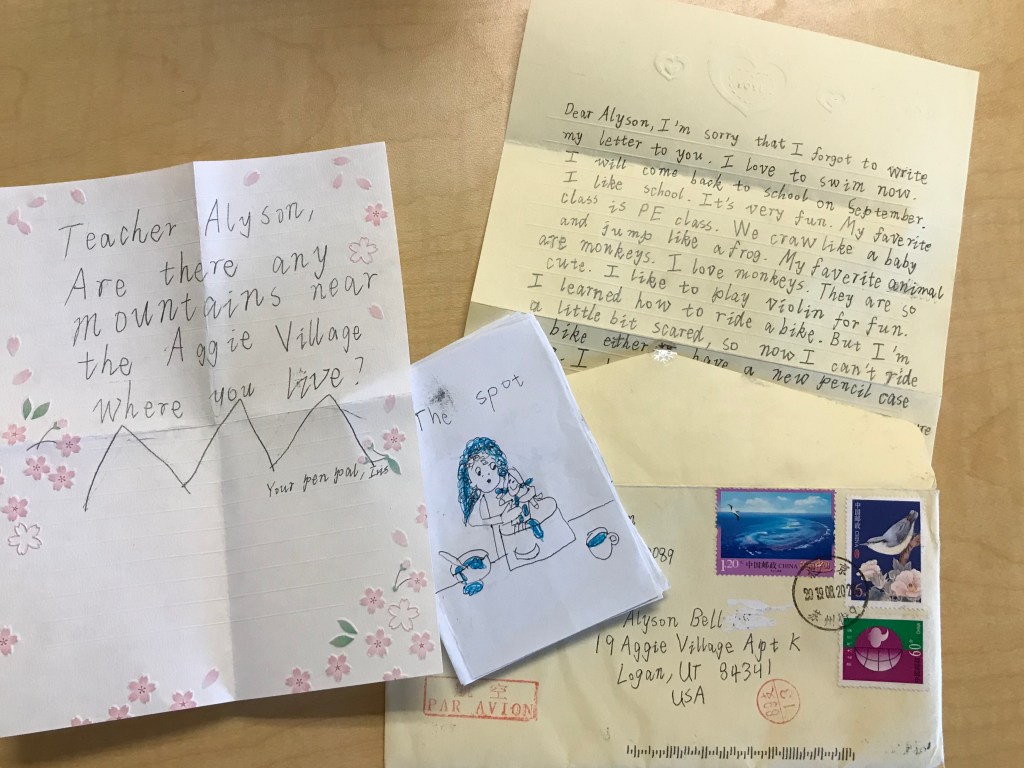 Teacher Alyson,
Are there any
mountains near
the Aggie Village
where you live?
Your pen pal,
The spot
Dear Alyson, I'm sorry that I forgot to write
my letter to you. I love to swim now.
I will come back to school on September.
I like school. It's very fun. My favorite
class is PE class. We craw like a baby
and jump like a frog. My favorite animal
are monkeys. I love monkeys. They are so
cute. I like to play violin for fun.
I learned how to ride a bike. But I'm
a little bit scared, so now I can't ride
bike either have a new pencil case
1.20 中国邮政 CHINA
中国邮政
CHINA
Alyson Bell
19 Aggie Village Apt K
Logan, UT 84341
USA
PAR AVION